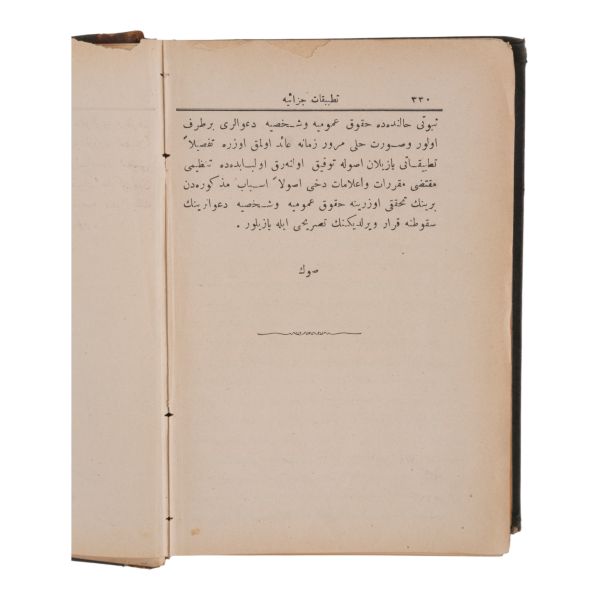 ٣٣٠ تطبيقات جزائيه
ثبوتى حالنده‌ده حقوق عموميه وشخصيه دعوالرى برطرف
اولور وصورت حلى مرور زمانه عائد اولمق اوزره تفصيلاً
تطبيقاتى يازيلان اصوله توفيق اولنه‌رق اولبابده‌ده تنظيمى
مقتضى مقررات واعلامات دخى اصولاً اسباب مذكوره‌دن
برينك تحققى اوزرينه حقوق عموميه وشخصيه دعوالرينك
سقوطنه قرار ويرلديكنك تصريحى ايله يازيلور .
صوك